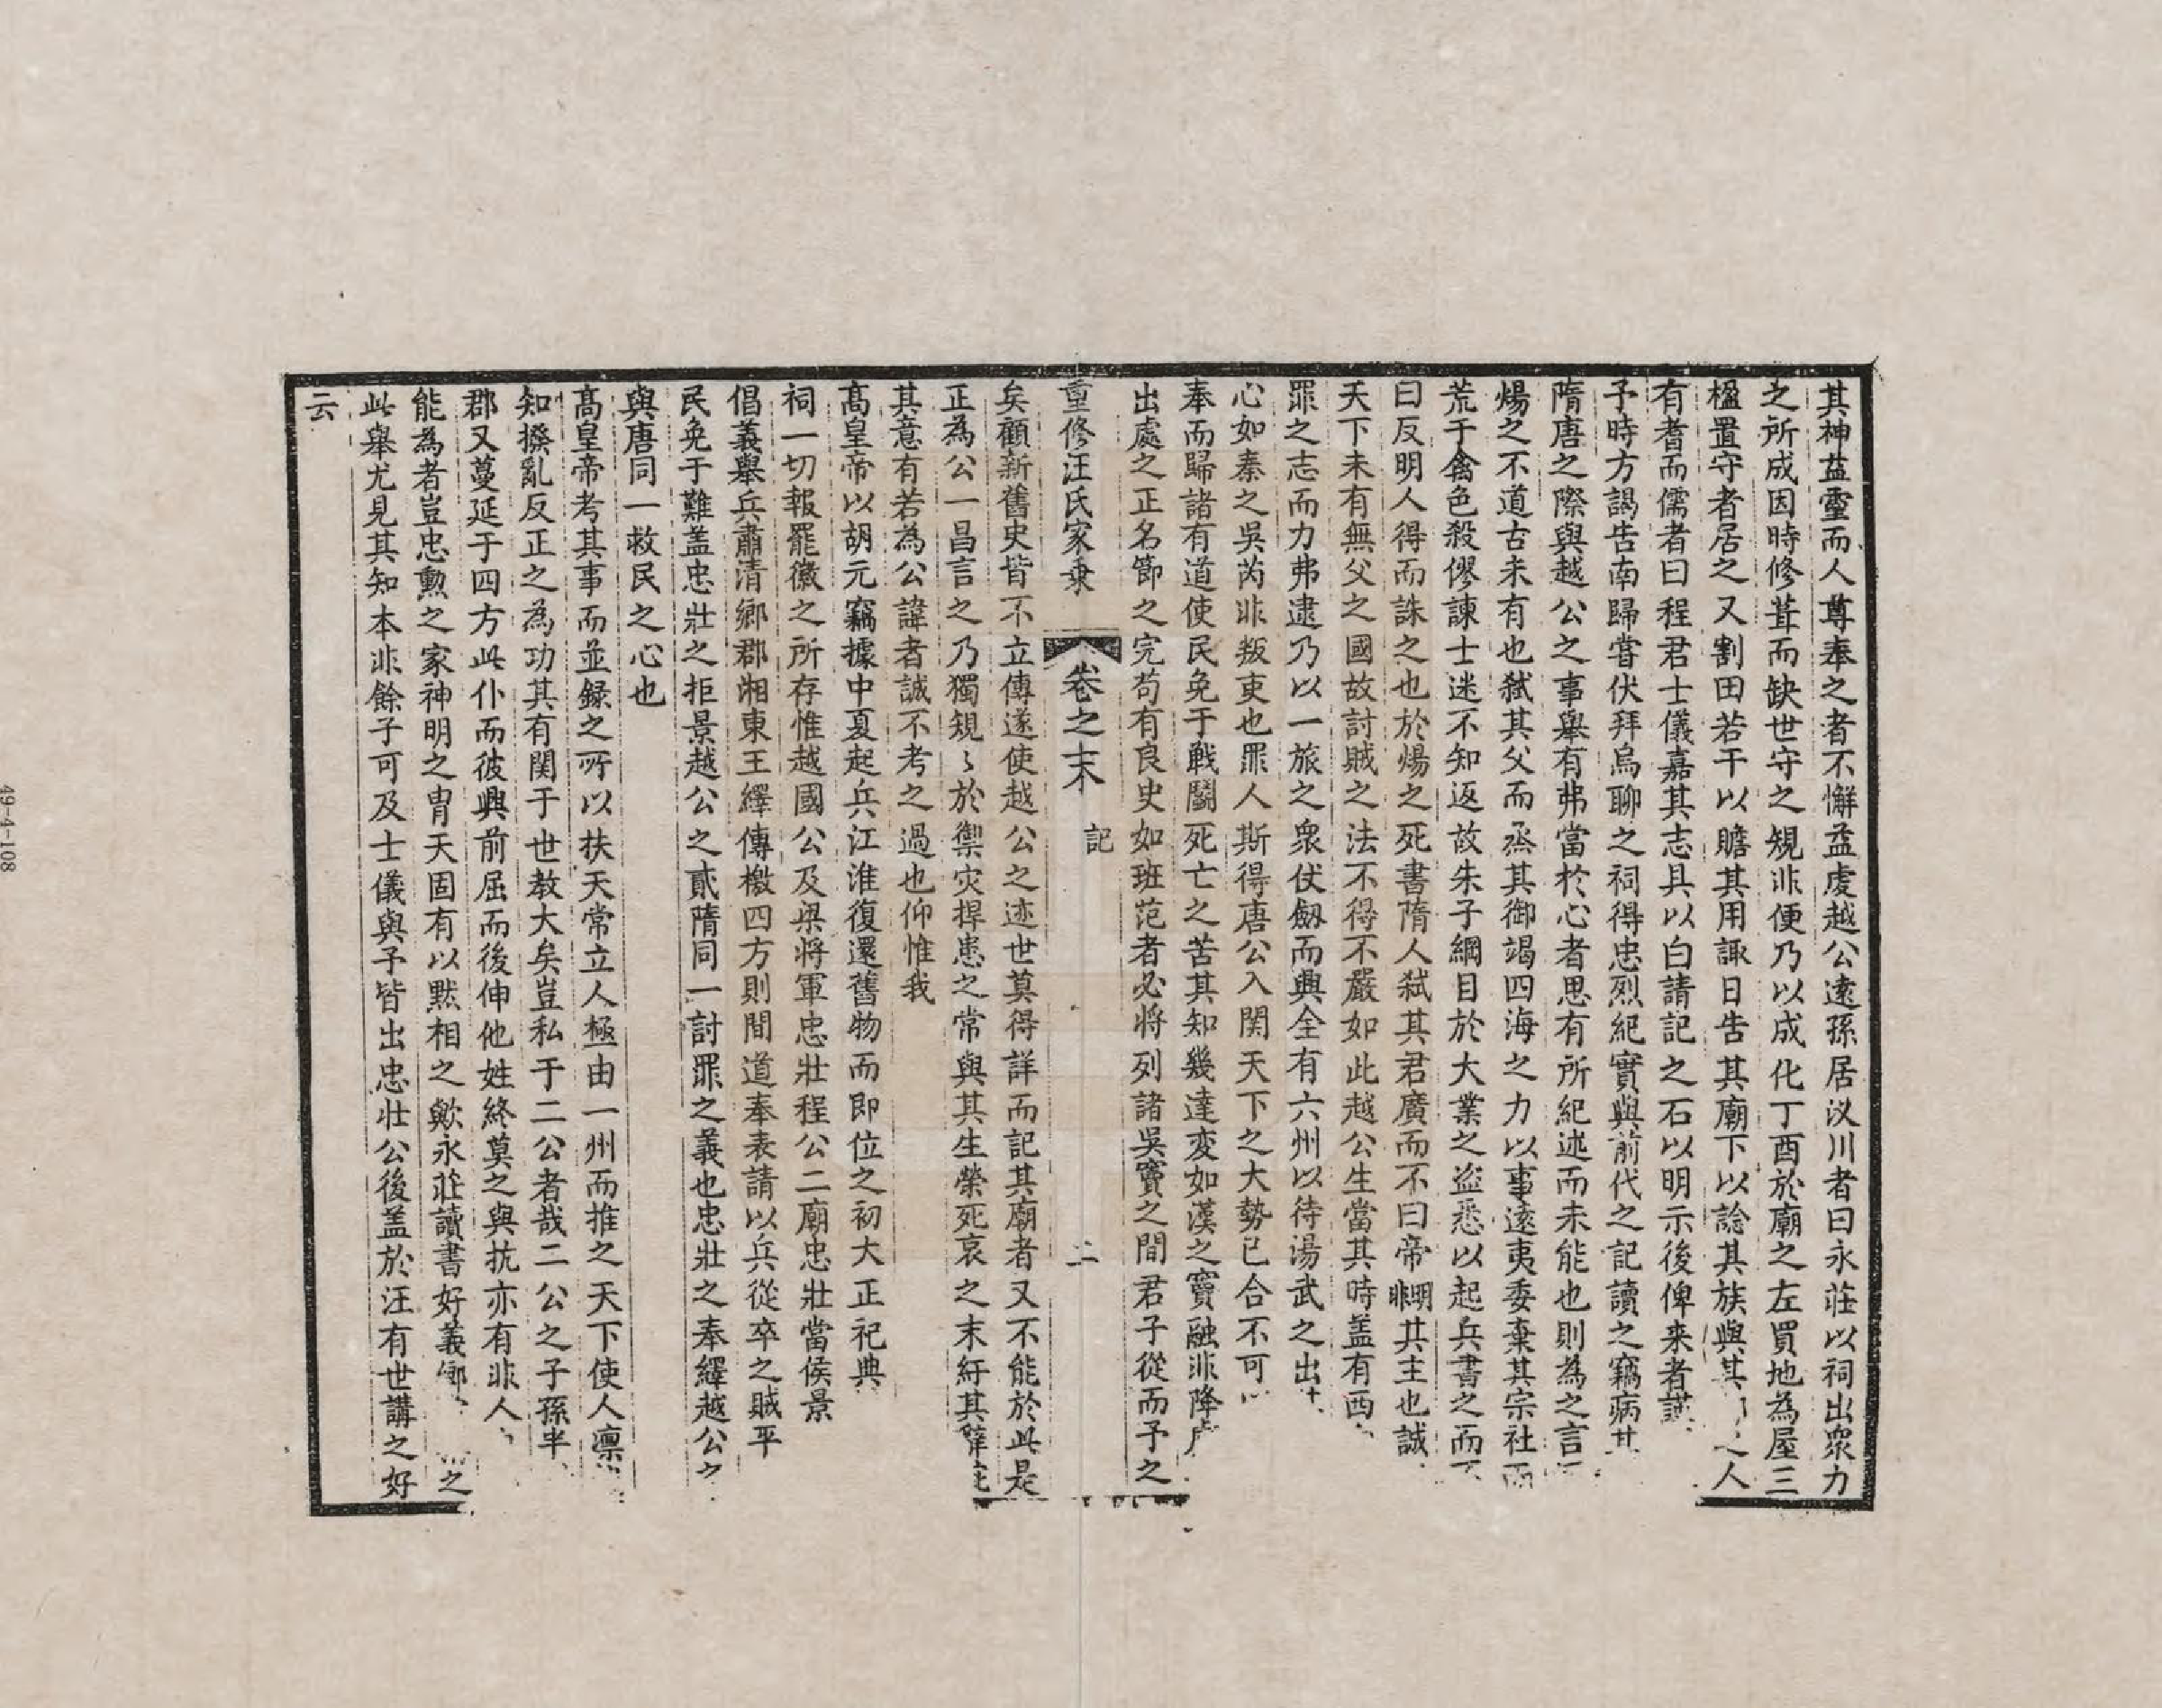 其神益靈而人尊奉之者不懈益虔越公遠孫居汊川者曰永莊以祠出衆力
之所成因時修葺而缺世守之規非便乃以成化丁酉於廟之左買地為屋三
楹置守者居之又割田若干以贍其用諏日告其廟下以諗其族與其人
有耆而儒者曰程君士儀嘉其志具以白請記之石以明示後俾来者謹
予時方謁告南歸嘗伏拜烏聊之祠得忠烈紀實與前代之記讀之竊病其
隋唐之際與越公之事舉有弗當於心者思有所紀述而未能也則為之言
煬之不道古未有也弑其父而烝其御竭四海之力以事遠夷委棄其宗社而
荒于禽色殺僇諫士迷不知返故朱子綱目於大業之盜悉以起兵書之而不
曰反明人得而誅之也於煬之死書隋人弑其君廣而不曰帝明非其主也誠
天下未有無父之國故討賊之法不得不嚴如此越公生當其時盖有西
罪之志而力弗逮乃以一旅之衆伏劒而興全有六州以待湯武之出
心如秦之吳芮非叛吏也罪人斯得唐公入関天下之大勢已合不可
奉而歸諸有道使民免于戰鬬死亡之苦其知幾達变如漢之竇融非降虜
出處之正名節之完苟有良史如班范者必将列諸吳竇之間君子從而予之
重修汪氏家乗 卷之末 記 二
矣顧新舊史皆不立傳遂使越公之迹世莫得詳而記其廟者又不能於此是
正為公一昌言之乃獨規〻於禦灾捍患之常與其生榮死哀之末紆其辭
其意有若為公諱者誠不考之過也仰惟我
髙皇帝以胡元竊據中夏起兵江淮復還舊物而即位之初大正祀典
祠一切報罷徽之所存惟越國公及梁将軍忠壯程公二廟忠壯當侯景
倡義舉兵肅清鄉郡湘東王繹傳檄四方則間道奉表請以兵從卒之賊平
民免于難盖忠壯之拒景越公之貳隋同一討罪之義也忠壯之奉繹越公之
與唐同一救民之心也
髙皇帝考其事而並録之所以扶天常立人極由一州而推之天下使人凛
知撥亂反正之為功其有関于世教大矣豈私于二公者哉二公之子孫半
郡又蔓延于四方此仆而彼興前屈而後伸他姓終莫之與抗亦有非人
能為者豈忠勲之家神明之胄天固有以黙相之歟永莊讀書好義鄉之
此舉尤見其知本非餘子可及士儀與予皆出忠壮公後盖於汪有世講之好
云
49-4-108